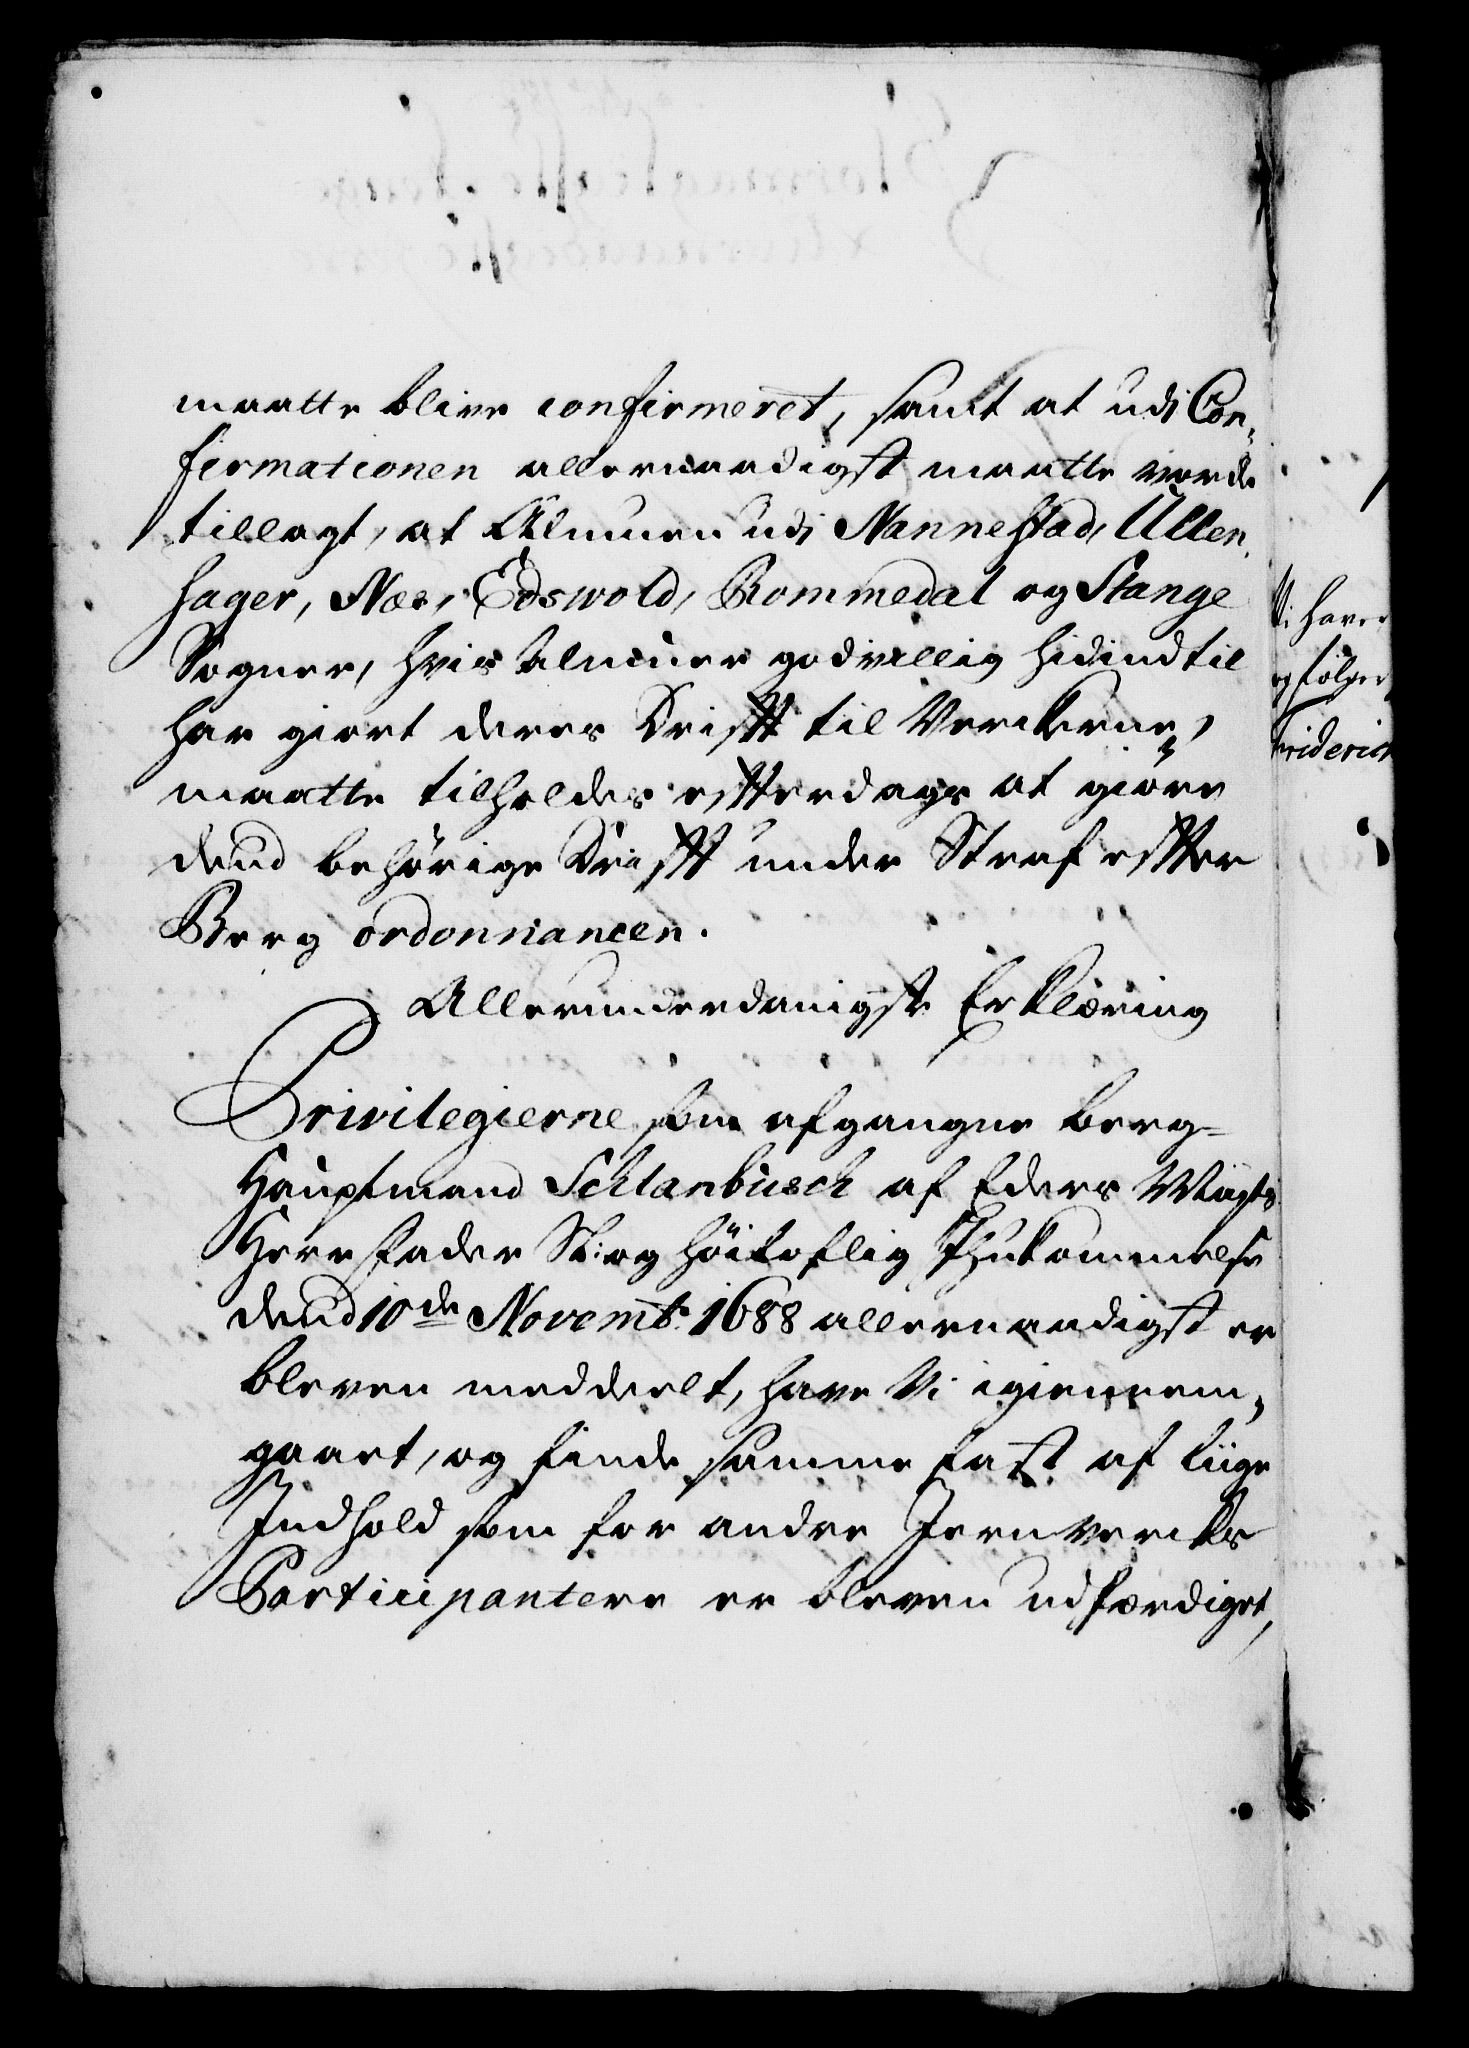 maatte blive confirmeret, samt at udj Con,
firmationen allernaadigst maatte vorde
tillagt, at Almuen udj Nannestad, Ullen,
sager, Næs, Edswold, Rommedal og Stange
Sogner, hvis Almuer godvillig hidindtil
har giort deres Drifft til Verckerne,
maatte tilholdes effterdags at giöre
dend behörige Drifft under Straf effter
Berg ordonnancen.
Allerunderdanigste Erklæring
Privilegierne som afgangne Berg-
Hauptmand Schlanbusch af Eders Mayts
Herr Fader St: og höiloflig Ihukommelse
dend 10de Novemb: 1688 allernaadigst er
bleven meddeelt, have Vi igiennem,
gaaet, og finde samme fast af liige
Indhold som for andre Jernvercks
Participantere er bleven udfærdiget,
Vi have
og följer
Friderich